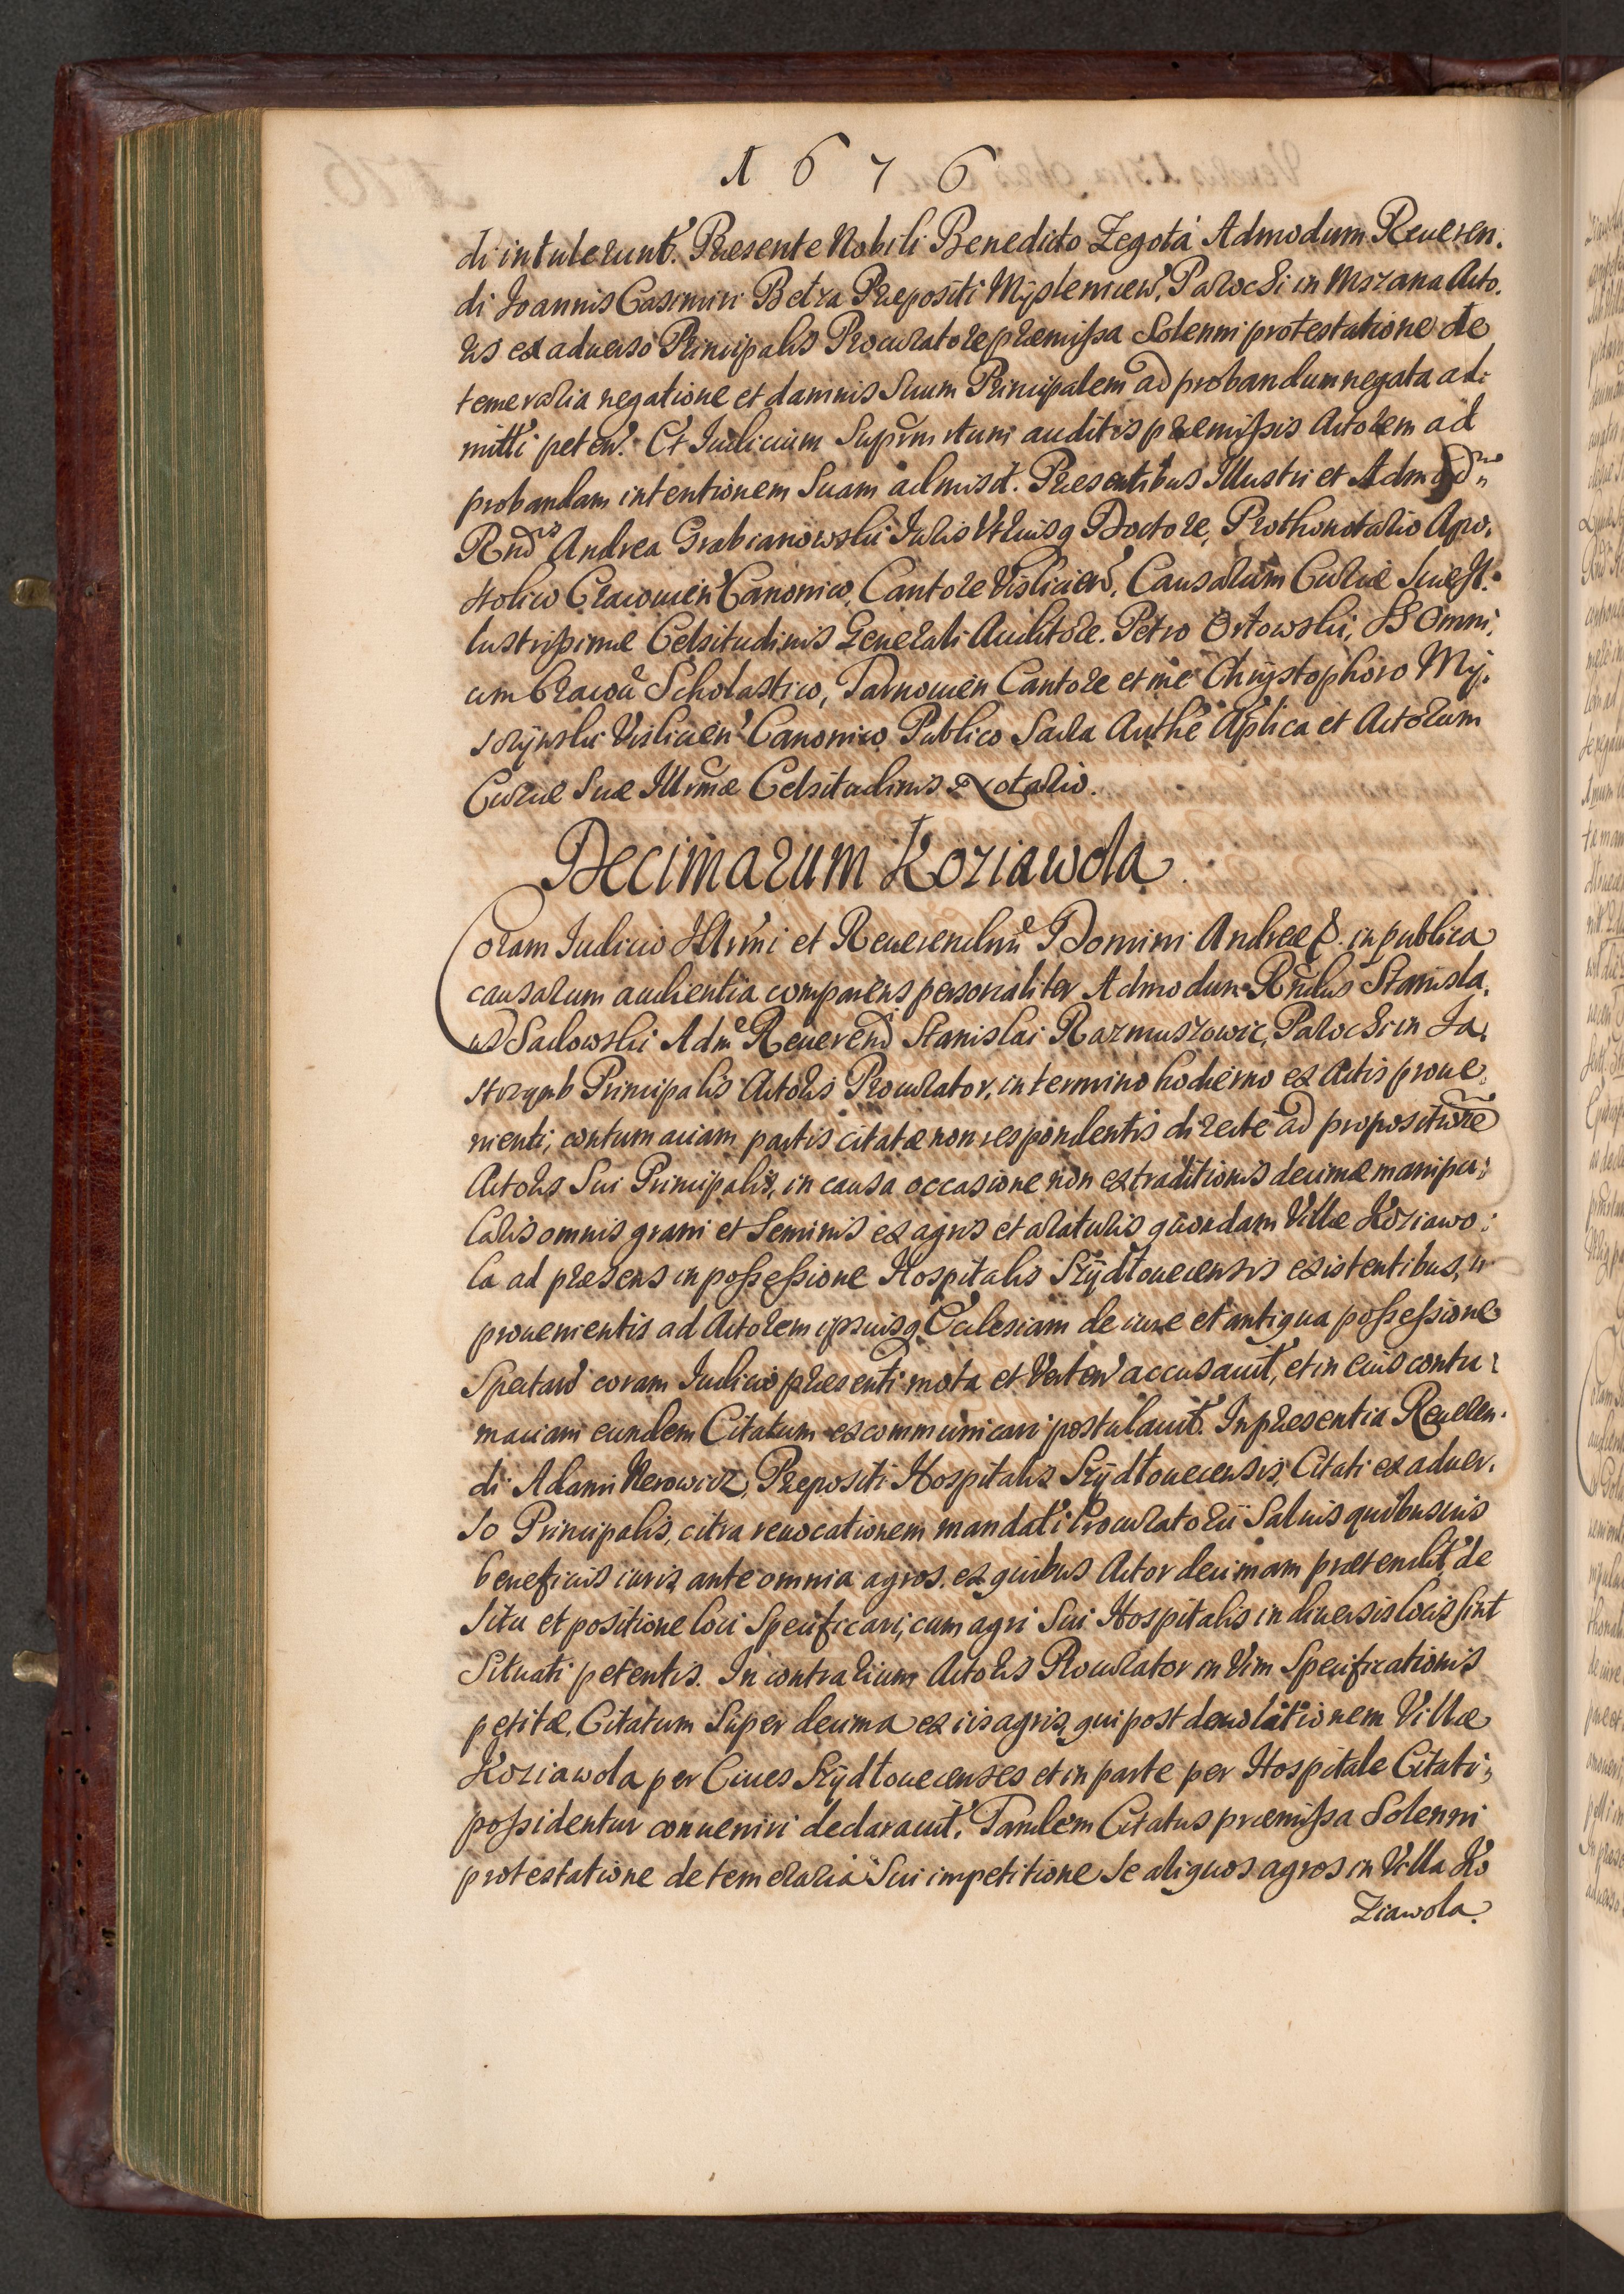 1676
di intulerunt. Presente Nobili Benedicto Zegota Admodum Reueren.
di Joannis Casimiri Betza Præpositi Myslenicen. Parochi in Mszana Acto.
ris ex aduerso Principalis Procuratore præmissa Solenni protestatione de
temeraria negatione et damnis Suum Principalem ad probandum negata ad:
mitti peten. Et Iudicium auditis præmissis Actorem ad
probandam intentionem Suam admisit. Præsentibus Illustri et Admod.
Rndis Andrea Grabianowski Juris Vtriusq Doctore, Prothonotario Apo.
stolico Cracouien Canonico, Cantore Vislicien, Causarum Curiæ Suæ Il.
lustrissimæ Celsitudinis Generali Auditore. Petro Ortowski, SS Omni.
um Cracou Scholastico, Tarnouien Cantore et me Chrystophoro My.
Vislicien Canonico Publico Sacra Authe Aplica et Actorum
Curiæ Suæ Illrmæ Celsitudinis Notario.
Decimarum Koziawola.
Coram Iudicio Illrmi et Reuerendmi Domini Andreæ &. in publica
causarum audientia comparens personaliter Admodum Rndus Stanisla.
us Sadowski Adm Reuerend Stanislai Razmuszowic, Parochi in Ja.
strząmb Principalis Actoris Procurator, in termino hodierno ex Actis proue.
nienti, contumaciam partis citatæ non respondentis directe ad propositione
Actoris Sui Principalis, in causa occasione non extraditionis decimæ manipu:
laris omnis grani et Seminis ex agris et araturis quondam Villæ Koziawo:
la ad præsens in possessione Hospitalis Szydłouecensis existentibus,
prouenientis ad Actorem ipsiusq Ecclesiam de iure et antiqua possessione
Spectan coram Iudicio præsenti mota et Verten accusauit, et in eius contu:
maciam eundem Citatum excommunicari postulauit. In præsentia Reueren.
di Adami Nerowicz, Præpositi Hospitalis Szydłouecensis, Citati ex aduer.
so Principalis, citra reuocationem mandati Procuratorii Saluis quibusuis
beneficiis iuris ante omnia agros. ex quibus Actor decimam prætendit, de
Situ et positione loci Specificari, cum agri Sui Hospitalis in diuersis locis sint
Situati petentis. In contrarium Actoris Procurator in Vim Specificationis
petitæ, Citatum Super decima ex iis agris, qui post desolationem Villæ
Koziawola per Ciues Szydłouecenses et in parte per Hospitale Citati:
possidentur conueniri declarauit. Tandem Citatus præmissa Solenni
protestatione de temeraria Sui impetitione Se aliquos agros in Villa Ko
Ziawola.